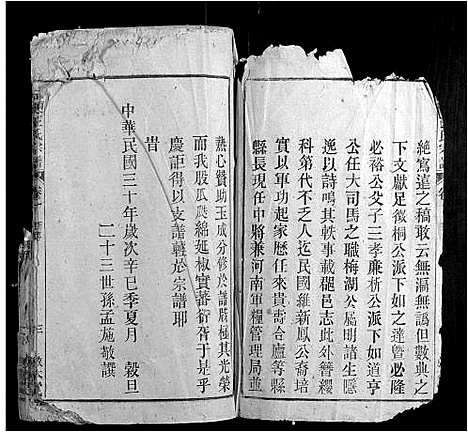 絶寫遠之稿敢云無漏無譌但數典之
下文獻足徵桐公派下如之達暨必隆
必裕公父子三孝廉析公派下如道亨
公任大司馬之職梅湖公屬明諸生
逸以詩鳴其軼事載郡邑志此外簪纓
科第代不乏人迄民國維新鳳公裔培
實以軍功起家歷任來貴霍合廬等縣
縣長現任中將兼河南軍糧管理局
熱心贊助玉成分修於譜牒極其光榮
而我股瓜瓞綿延椒實蕃衍胥于是乎
慶詎得以支譜轉於宗譜耶
旹
中華民國三十年歲次辛巳季夏月 穀旦
二十三世孫孟施敬譔